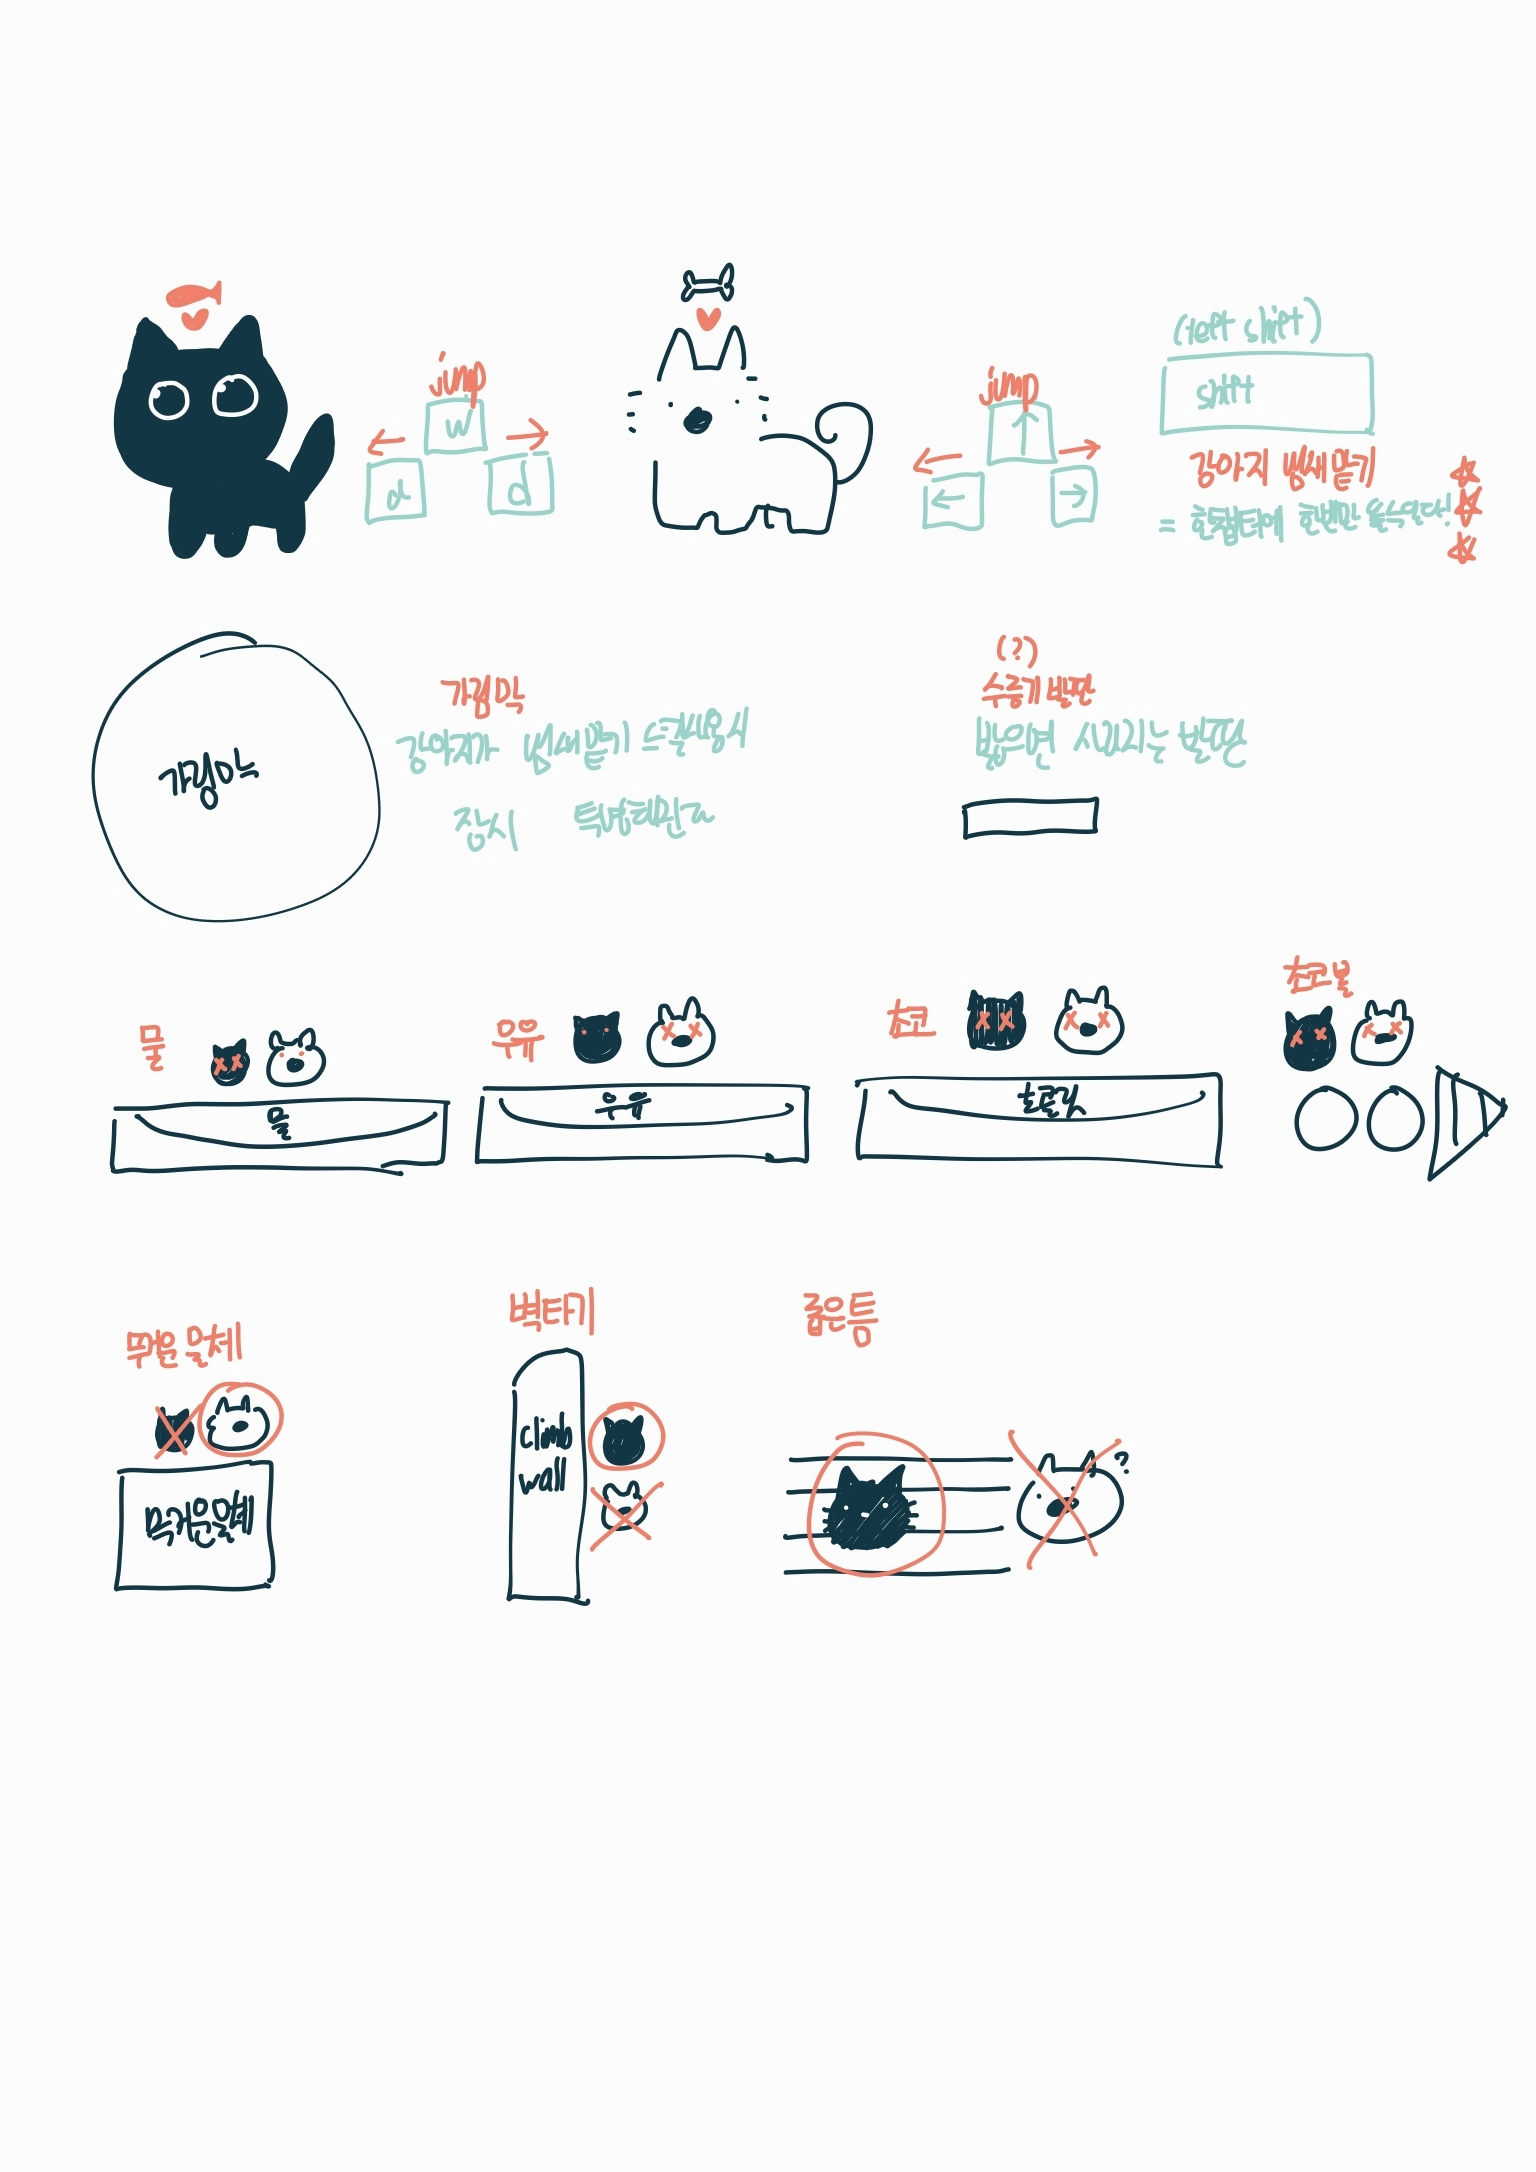 jump
w
a
d
jump
↑
←
→
(left shift)
shift
강아지 냄새 맡기
= 한 챕터에 한번만 쓸 수 있다!
가림막
가림막
강아지가 냄새맡기 스킬 사용시
잠시 투명해
(?)
수증기 발판
밟으면 사라지는 발판
물
물
우유
우유
초코
초콜릿
초코볼
무거운 물체
무거운물체
벽타기
climb
wall
좁은 틈
?